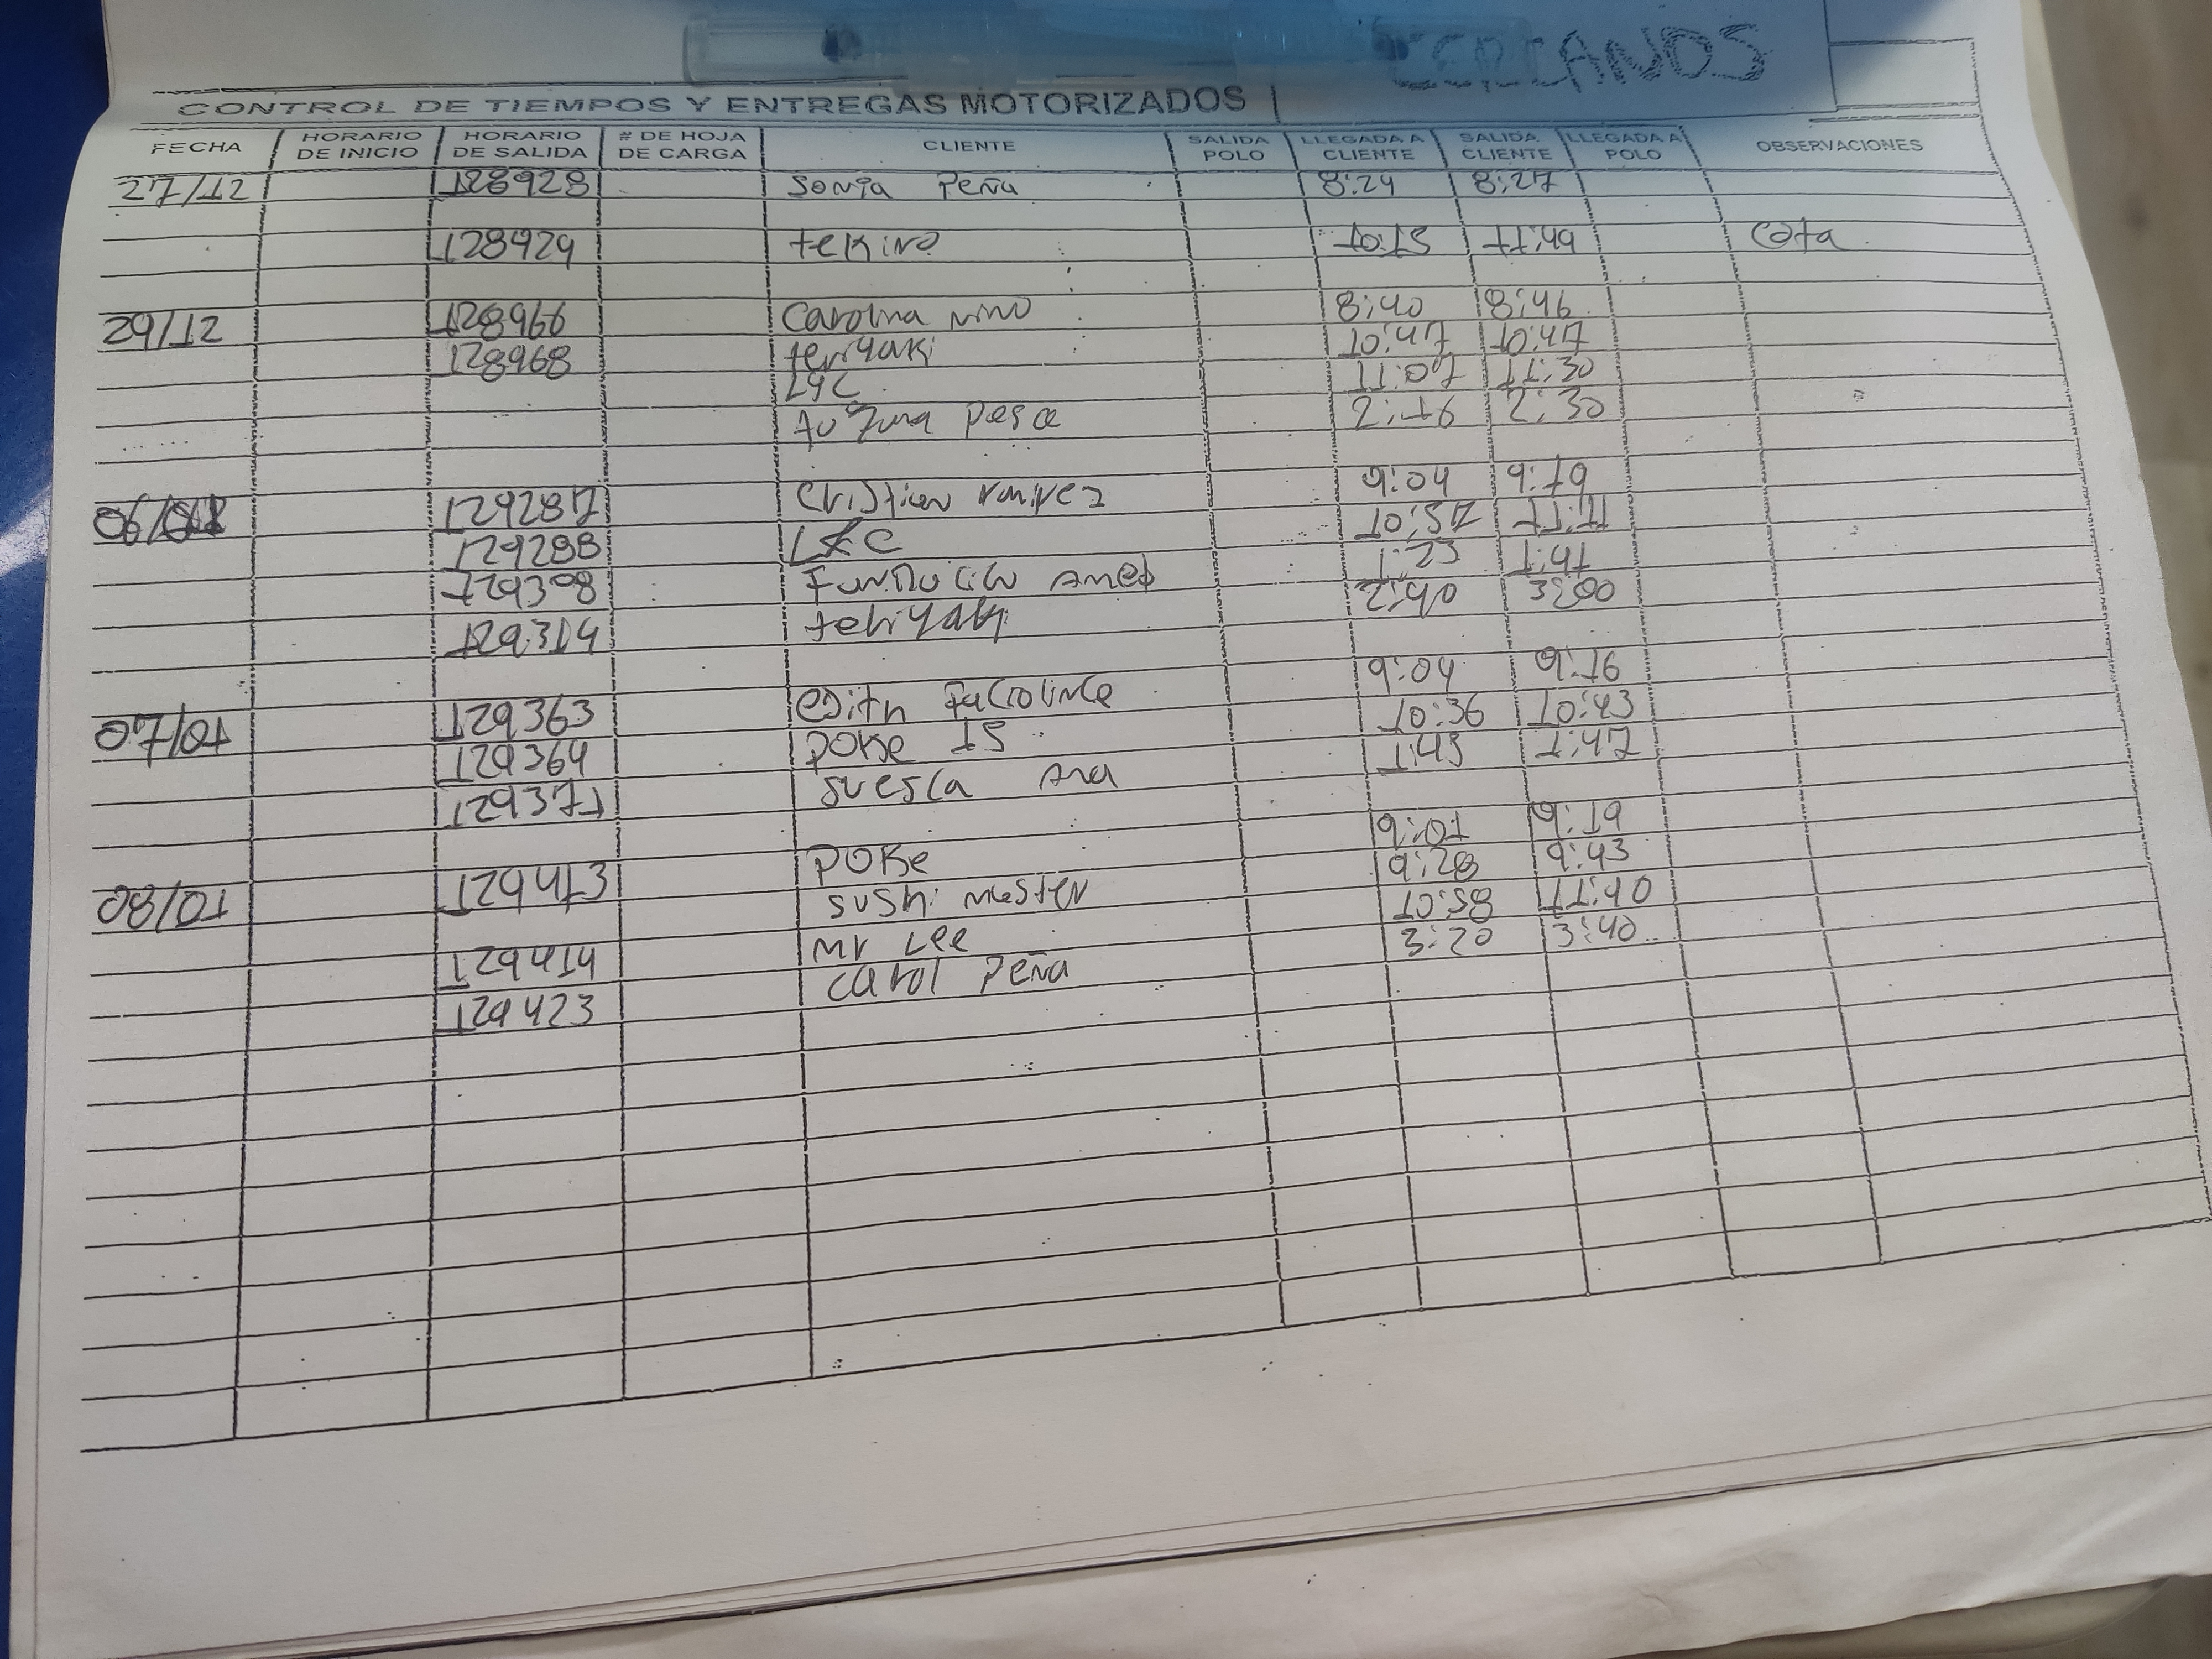 CERCANOS
CONTROL DE TIEMPOS Y ENTREGAS MOTORIZADOS
FECHA HORARIO DE INICIO HORARIO DE SALIDA # DE HOJA DE CARGA CLIENTE SALIDA POLO LLEGADA A CLIENTE SALIDA CLIENTE LLEGADA A POLO OBSERVACIONES
27/12 128928 Sonia Peña 8:24 8:27
128929 tekino 10:15 11:49 cota
29/12 128966 Carolina nino 8:40 8:46
128968 teriyaki 10:47 10:47
LYC 11:07 11:30
pesca 2:16 2:30
06/01 129287 Cristian ramirez 9:04 9:19
129288 LYC 10:57 11:11
129398 1:23 1:41
129314 teriyaki 2:40 3:00
07/01 129363 edith 9:04 9:16
129364 POKE 15 10:36 10:43
129371 suesca Ana 1:45 1:47
08/01 129413 POKE 9:01 9:19
sushi master 9:28 9:43
129414 Mr Lee 10:58 11:40
129423 carol Peña 3:20 3:40